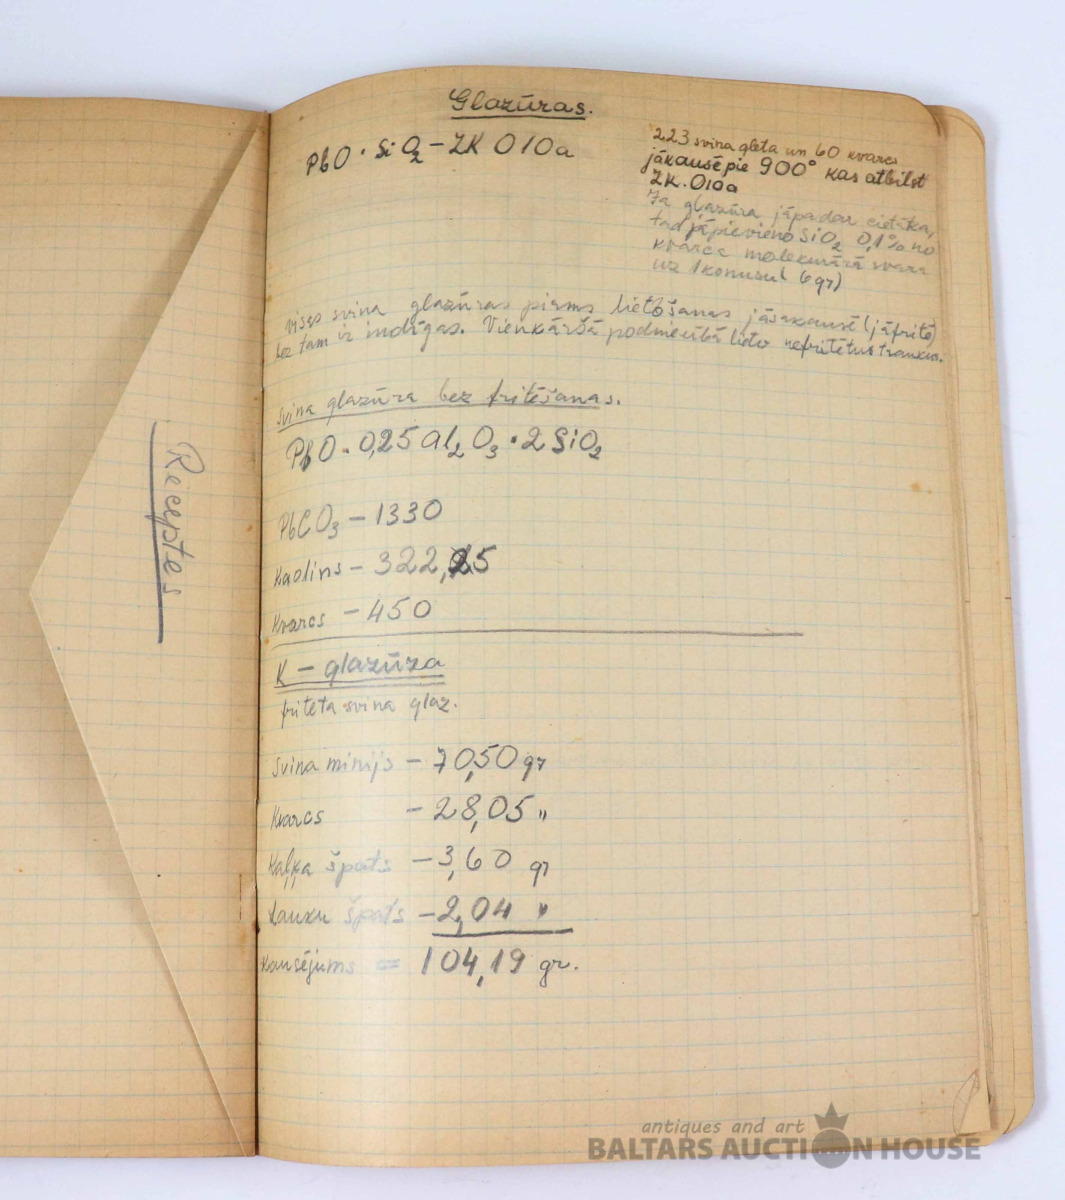 Receptes
Glazūras.
PbO · SiO2 – ZK 010a
223 svina glēta un 60 kvarcs
jākausē pie 900° kas atbilst
ZK. 010a
Ja glazūra jāpadar cietāka,
tad jāpievieno SiO2 0,1% no
kvarca molekulārā svara
uz 1 konusu (6 gr)
Visas svina glazūras pirms lietošanas jāsakausē (jāfritē)
bez tam ir indīgas. Vienkāršā podniecībā lieto nefritētus traukus.
Svina glazūra bez fritēšanas.
PbO · 0,25 Al2O3 · 2 SiO2
PbCO3 – 1330
Kaolins – 322,5
Kvarcs – 450
K – glazūra
fritēta svina glaz.
Svina mīnijs – 70,50 gr
Kvarcs – 28,05 "
Kaļķa špats – 3,60 gr
Lauku špats – 2,04 "
Kausējums = 104,19 gr.
antiques and art
BALTARS AUCTION HOUSE